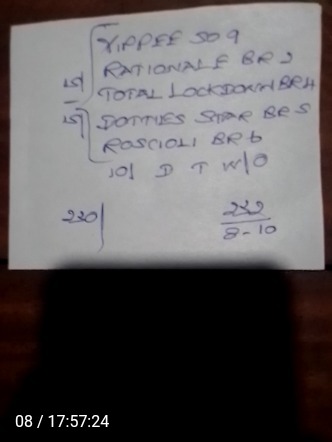 YIPPEE SO 9
RATIONALE BR 2
15/ TOTAL LOCKDOWN BR 4
15/ DOTTIES STAR BR 5
ROSCIOLI BR 6
10/ D T W/O
230/ 232
8-10
08 / 17:57:24